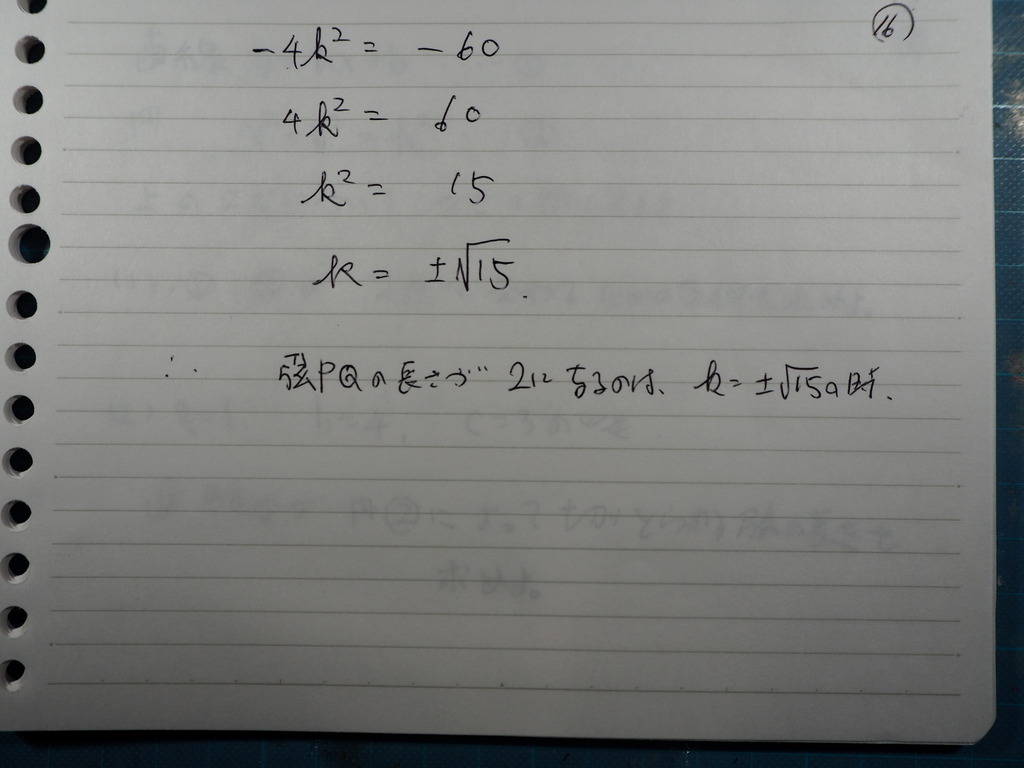 ⑯
-4k² = -60
4k² = 60
k² = 15
k = ±√15.
∴ 弦PQの長さが 2になるのは、k = ±√15の時.